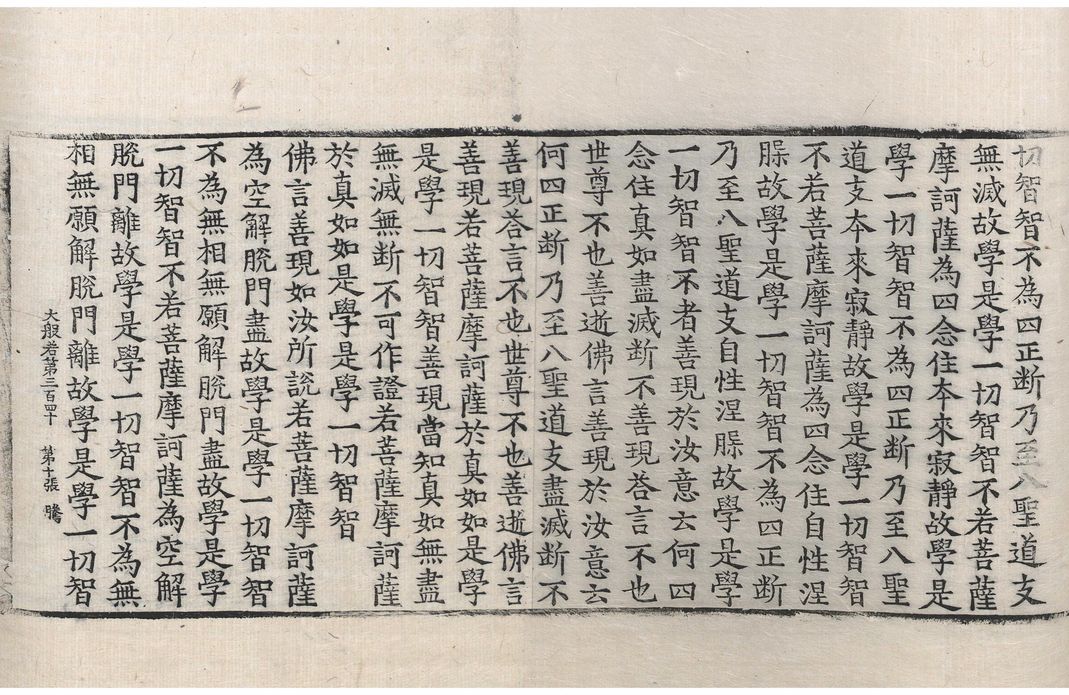 切智智不為四正断乃至八聖道支
無滅故學是學一切智智不若菩薩
摩訶薩為四念住本來寂靜故學是
學一切智智不為四正断乃至八聖
道支本來寂靜故學是學一切智智
不若菩薩摩訶薩為四念住自性涅
槃故學是學一切智智不為四正断
乃至八聖道支自性涅槃故學是學
一切智智不者善現於汝意云何四
念住真如盡滅断不善現荅言不也
世尊不也善逝佛言善現於汝意云
何四正断乃至八聖道支盡滅断不
善現荅言不也世尊不也善逝佛言
善現若菩薩摩訶薩於真如如是學
是學一切智智善現當知真如無盡
無滅無断不可作證若菩薩摩訶薩
於真如如是學是學一切智智
佛言善現如汝所說若菩薩摩訶薩
為空解脫門盡故學是學一切智智
不為無相無願解脫門盡故學是學
一切智智不若菩薩摩訶薩為空解
脫門離故學是學一切智智不為無
相無願解脫門離故學是學一切智
大般若第三百四十 第十張 騰